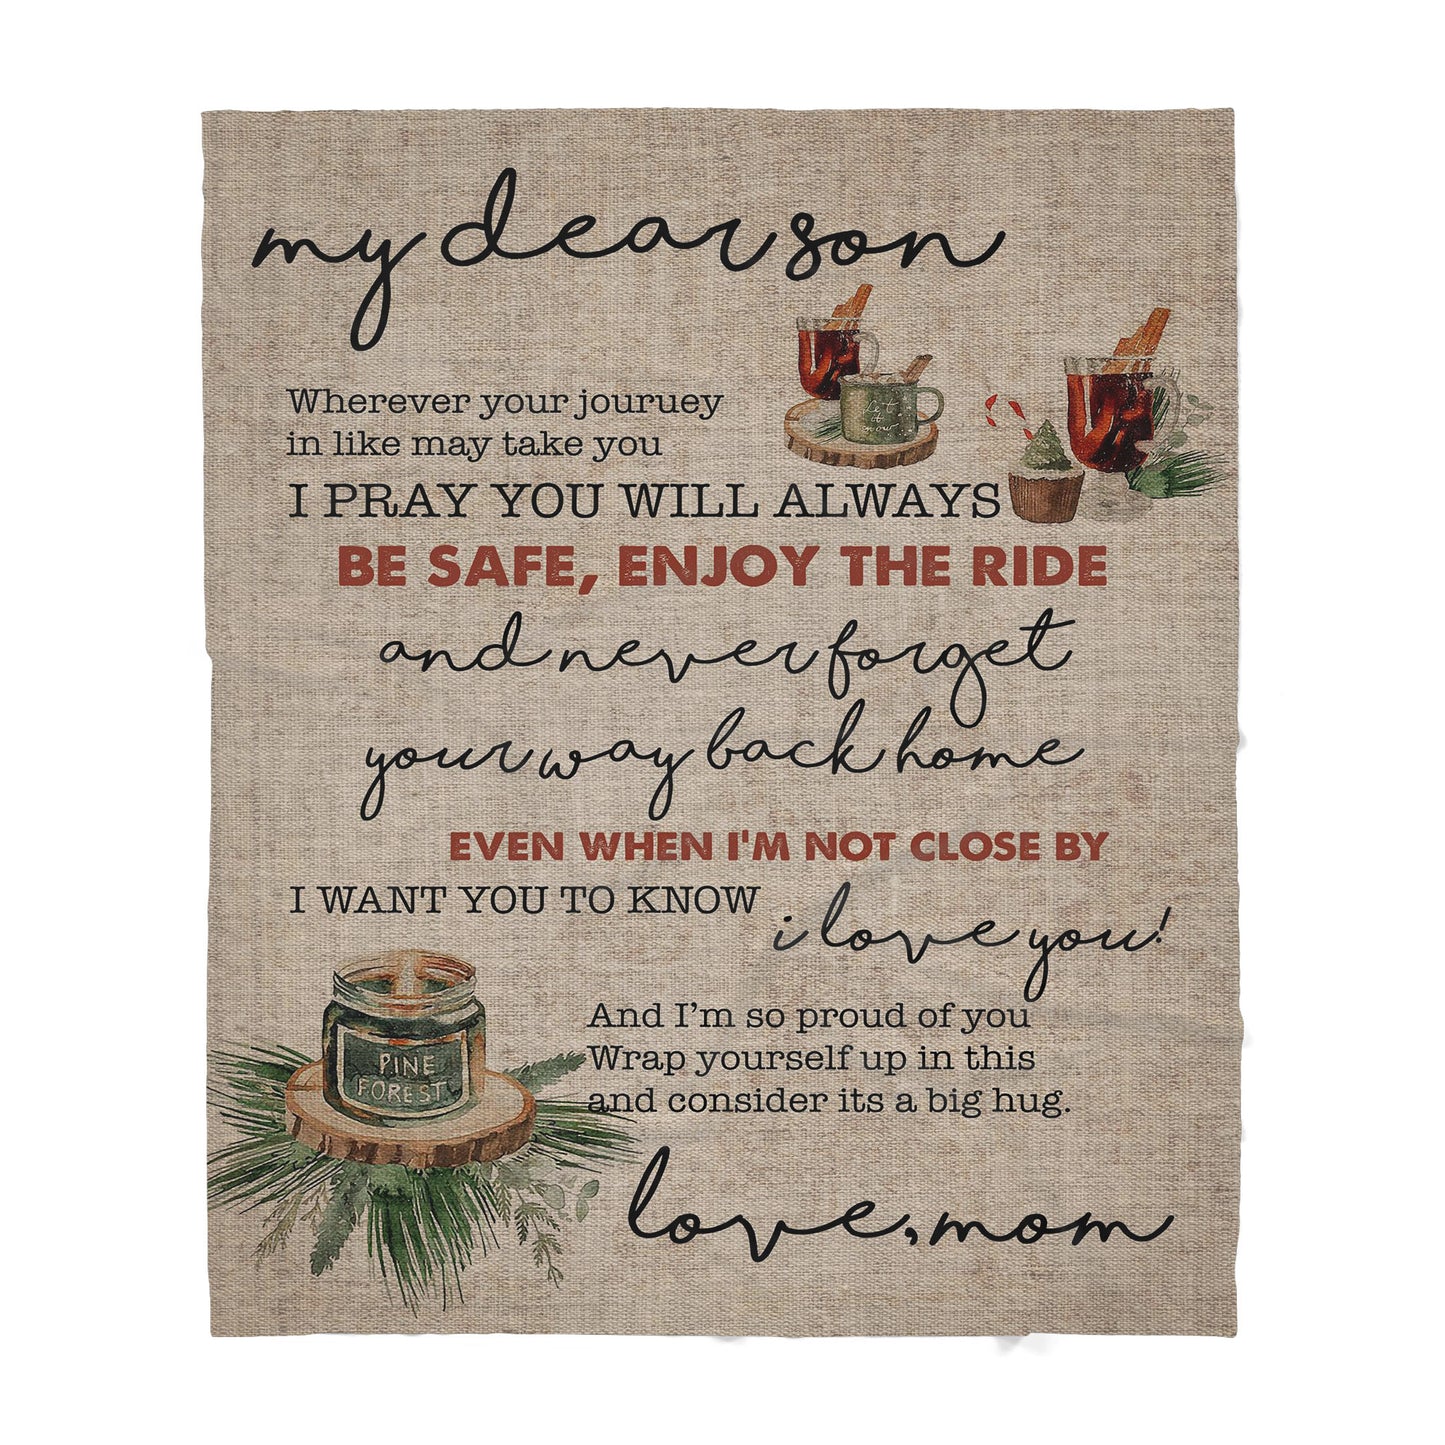 my dear son
Wherever your jouruey
in like may take you
I PRAY YOU WILL ALWAYS
BE SAFE, ENJOY THE RIDE
and never forget
your way back home
EVEN WHEN I'M NOT CLOSE BY
I WANT YOU TO KNOW
i love you!
And I'm so proud of you
Wrap yourself up in this
and consider its a big hug.
love, mom
let
it
snow
PINE
FOREST